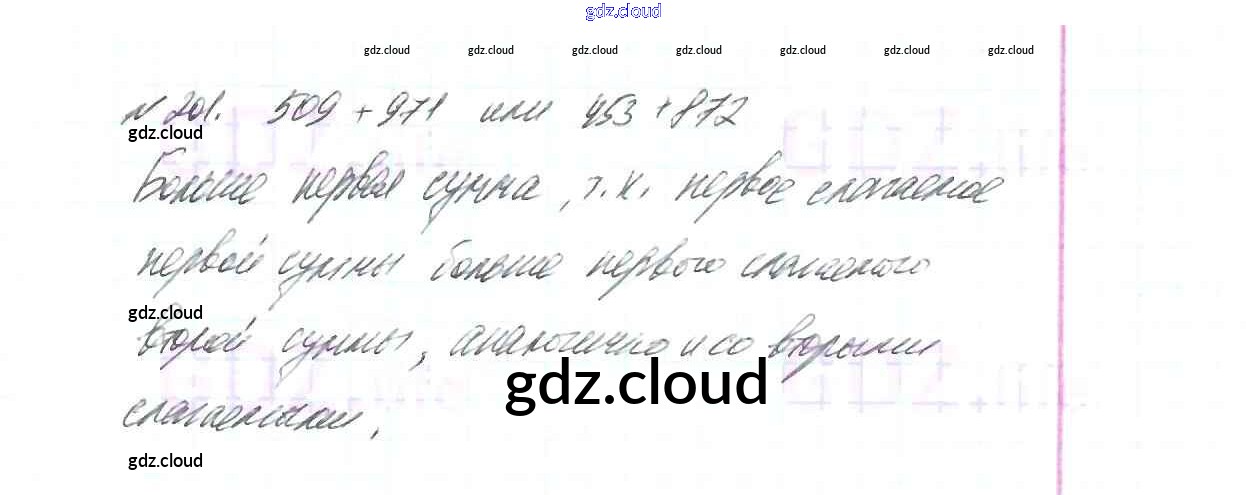 gdz.cloud
gdz.cloud gdz.cloud gdz.cloud gdz.cloud gdz.cloud gdz.cloud gdz.cloud
№ 201. 509 + 971 или 453 + 872
gdz.cloud
Больше первая сумма, т.к. первое слагаемое
первой суммы больше первого слагаемого
gdz.cloud
второй суммы, аналогично и со вторыми
gdz.cloud
слагаемыми.
gdz.cloud